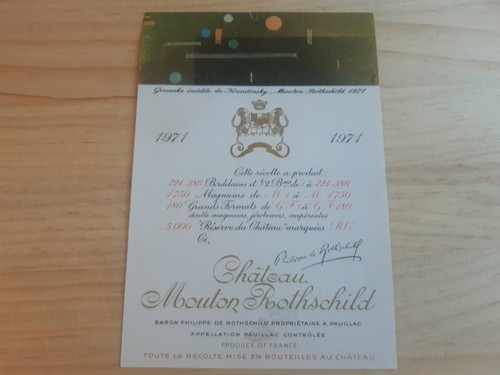 Gouache inédite de Kandinsky, Mouton Rothschild 1971
1971 1971
Cette récolte a produit:
224.380 Bordelaises et 1/2 Btes de 1 à 224.380
1750 Magnums de M 1 à M 1750
180 Grands Formats de G F 1 à G F 180
double magnums, jeroboams, impériales
5000 "Réserve du Château" marquées R.C.
Philippe de Rothschild
Château
Mouton Rothschild
BARON PHILIPPE DE ROTHSCHILD PROPRIÉTAIRE A PAUILLAC
APPELLATION PAUILLAC CONTRÔLÉE
PRODUCE OF FRANCE
TOUTE LA RÉCOLTE MISE EN BOUTEILLES AU CHATEAU